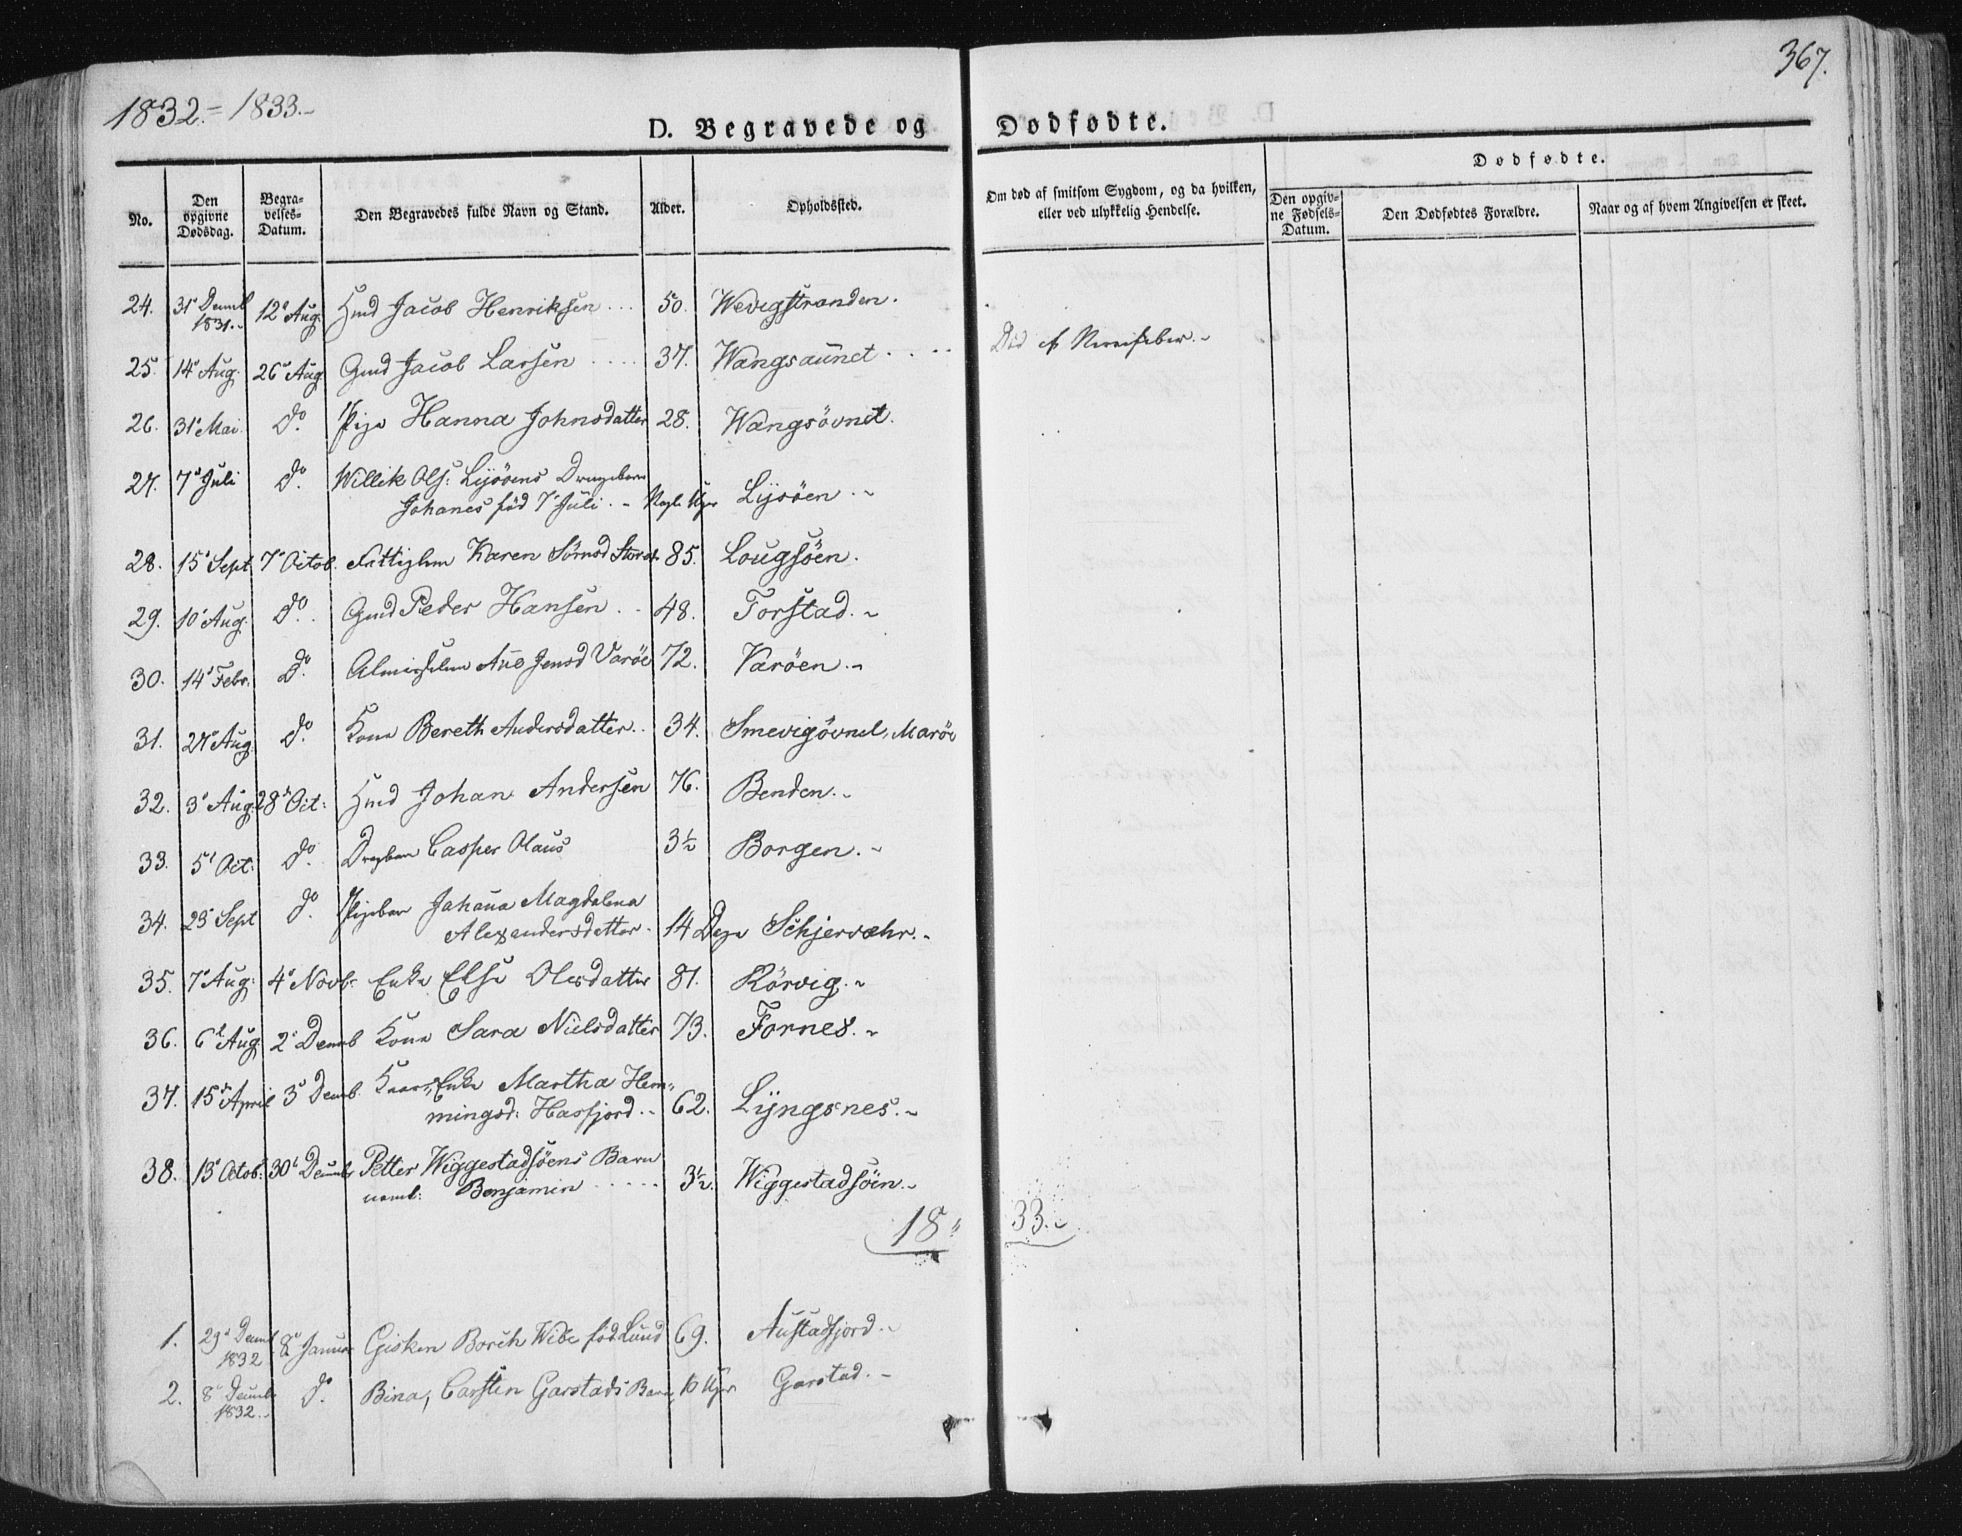 1832.=1833.-
367.
D. Begravede og Dødfødte.
No.
Den opgivne Dødsdag.
Begra-velses-Datum.
Den Begravedes fulde Navn og Stand.
Alder.
Opholdssted.
Om død af smitsom Sygdom, og da hvilken, eller ved ulykkelig Hendelse.
Dødfødte.
Den opgiv-ne Fødsels-Datum.
Den Dødfødtes Forældre.
Naar og af hvem Angivelsen er skeet.
24. 31 1831.- 12 Aug. Jacob Henriksen ... 50. Wevigstranden.
25. 14 Aug. 26 Aug Gmd Jacob Larsen .... 37. Wangsaunet .... Død af
26. 31 Mai. do. Pige Hanna Johnsdatter 28. Wangsøvnet.
27. 7 Juli do. Willik Ols: Lysøens Drengebarn
Johanes fød 7 Juli.- Nogle Uger Lysøen.-
28. 15 Sept 7 Octob. Karen 85. Lougsøen.
29. 10 Aug. do. Gmd Peder Hansen .. 48. Torstad.-
30. 14 Febr. do. Jensd Varøe 72. Varøen.-
31. 27 Aug. do. Kone Bereth Andersdatter.. 34. Smevigøvnet, Marøe
32. 3 Aug: 28 Oct: Johan Andersen 76. Benden.-
33. 5 Oct: do. Casper Olaus 3½ Borgen.-
34. 23 Sept do. Pigebarn Johana Magdalena
Alexandersdatter. 14 Dage Schjervæhr.-
35. 7 Aug: 4 Novb: Enke Else Olesdatter 81. Rörvig.-
36. 6 Aug. 2 Decemb Kone Sara Nielsdatter 73. Fornes.-
37. 15 April 3 Decmb. Enke Martha Hem-
mingsd: Hasfjord.. 62. Lyngsnes.-
38. 13 Octob: 30 Decembr Petter Wiggestadsøens Barn
navnl: Benjamin ..... 3½. Wiggestadsøen.-
18" 33.-
1. 29 Decmb 1832 Januar Gisken Borch Wibe fød Lund 69. Austadfjord.-
2. 8 Decmb 1832.- do. Bina, Carsten Garstads Barn, 10 Uger Garstad.-